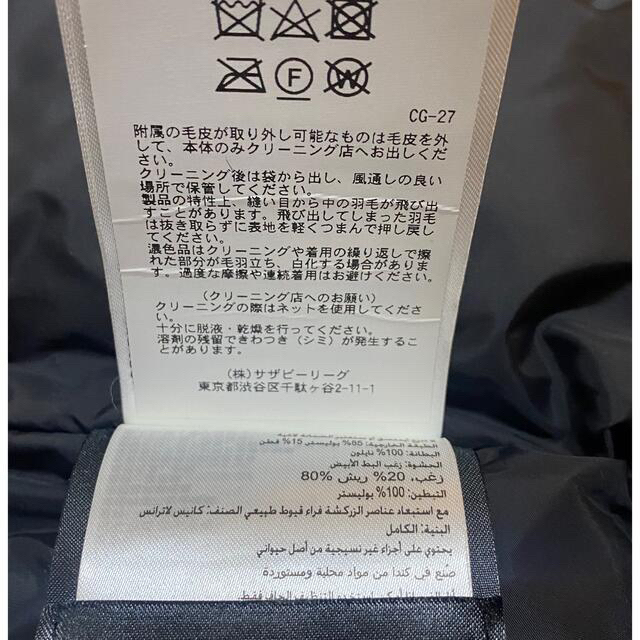 F
W
CG-27
附属の毛皮が取り外し可能なものは毛皮を外
して、本体のみクリーニング店へお出しくだ
さい。
クリーニング後は袋から出し、風通しの良い
場所で保管してください。
製品の特性上、縫い目から中の羽毛が飛び出
すことがあります。飛び出してしまった羽毛
は抜き取らずに表地を軽くつまんで押し戻し
てください。
濃色品はクリーニングや着用の繰り返しで擦
れた部分が毛羽立ち、白化する場合がありま
す。過度な摩擦や連続着用はお避けください。
(クリーニング店へのお願い)
クリーニングの際はネットを使用してくださ
い。
十分に脱液・乾燥を行ってください。
溶剤の残留できわつき(シミ)が発生するこ
とがあります。
(株)サザビーリーグ
東京都渋谷区千駄ヶ谷2-11-1
الطبقة الخارجية: 85% بوليستر 15% قطن
البطانة: 100% نايلون
الحشوة: زغب البط الأبيض
80% زغب، 20% ريش
التبطين: 100% بوليستر
مع استبعاد عناصر الزركشة فراء قيوط طبيعي الصنف: كانيس لاترانس
البنية: الكامل
يحتوي على أجزاء غير نسيجية من أصل حيواني
صُنع في كندا من مواد محلية ومستوردة